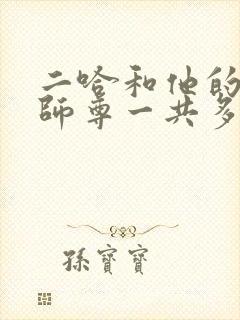 二哈和他的
師尊一共多
孫寶寶